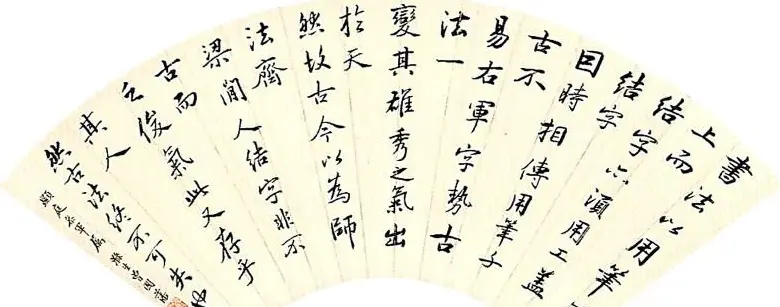 書法以用筆
上而
結字亦須用工蓋
結字
因時相傳用筆千
古不
易右軍字勢古
法一
變其雄秀之氣出
於天
然故古今以為師
法齊
梁間人結字非不
古而
乏俊氣此又存乎
其人
然古法終不可失也
滌生曾國藩